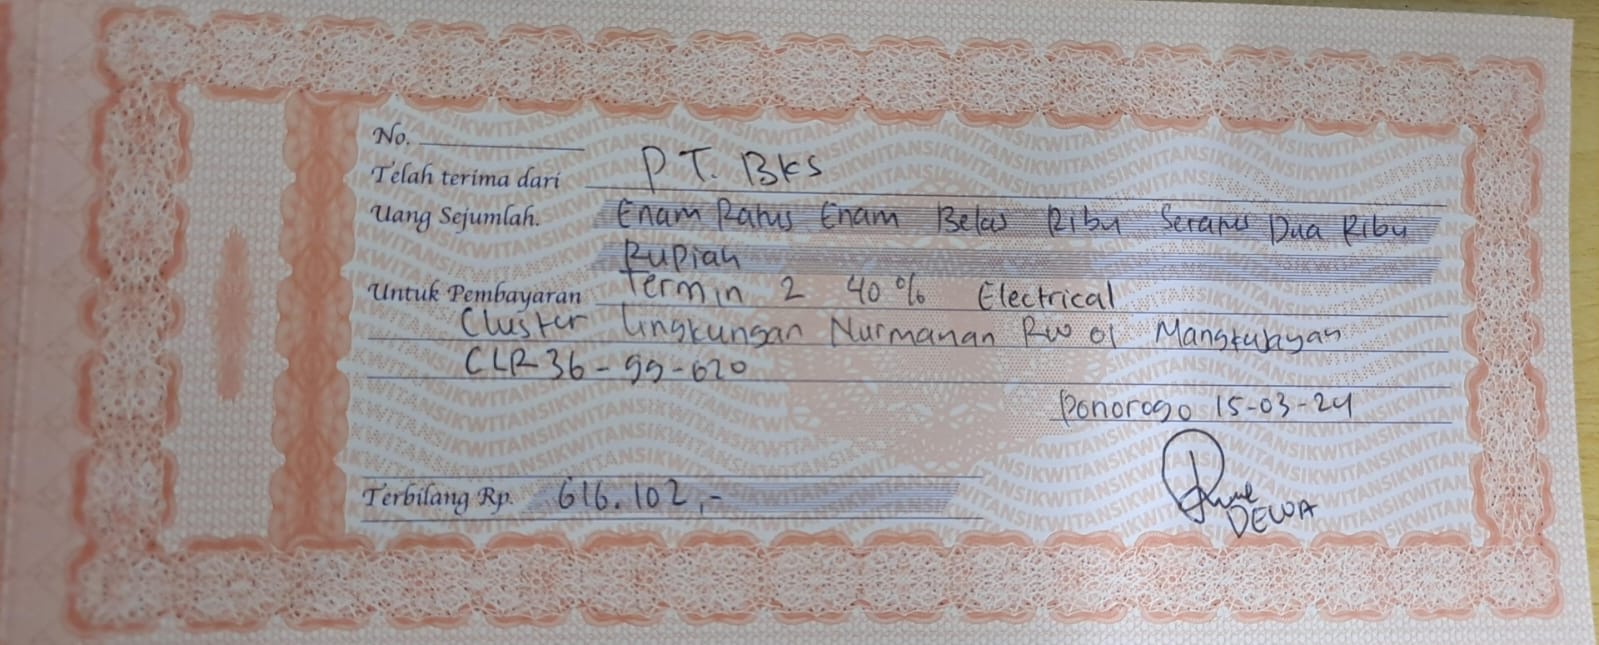 No.
Telah terima dari PT. BKS
Uang Sejumlah. Enam Ratus Enam Belas Ribu Seratus Dua Ribu
Rupiah
Untuk Pembayaran Termin 2 40% Electrical
Cluster Lingkungan Nurmanan RW 01 Mangkujayan
CLR 36-99-620
Ponorogo 15-03-24
Terbilang Rp. 616.102,-
DEWA